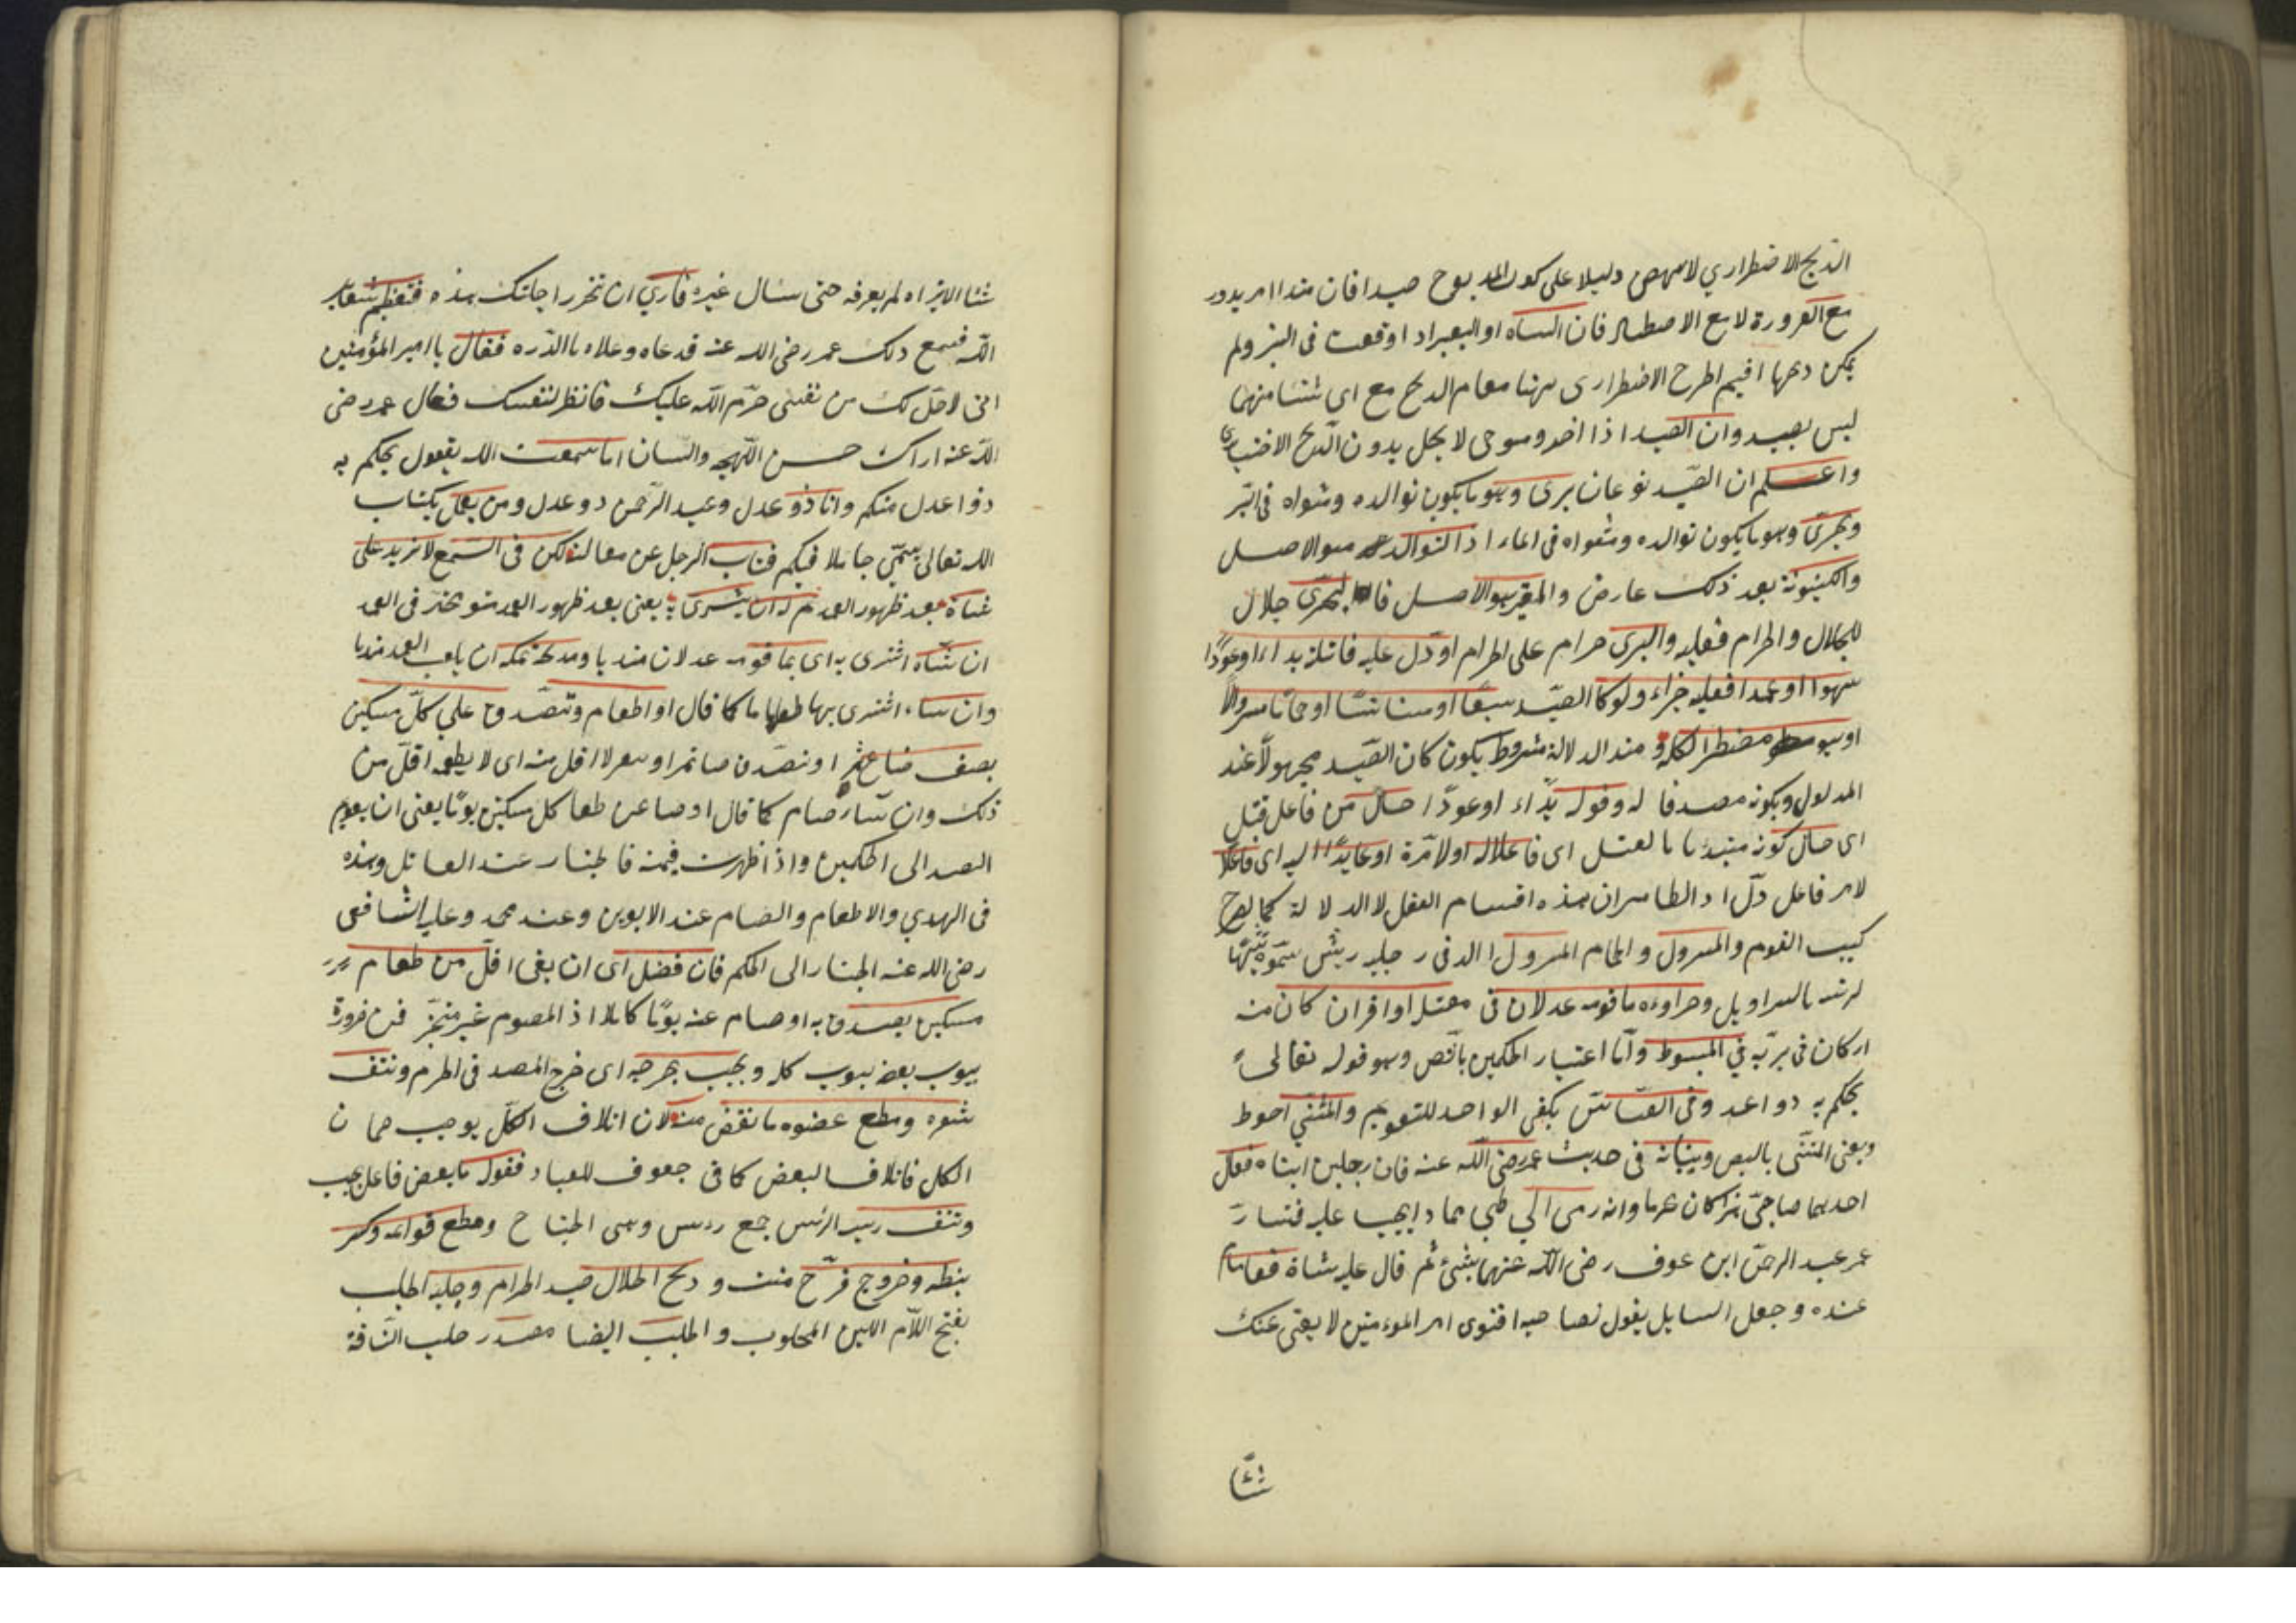 الذبح الاضطراري لا ينهض دليلا على كون المذبوح صيدا فان هذا امر يدور
مع الضرورة لا مع الاصطياد فان الشاه او البعير اذا وقعت فى البئر ولم
يمكن ذبحها اقيم الجرح الاضطرارى ههنا مقام الذبح مع اى شئنا منهما
ليس بصيد وان الصيد اذا اخذ وهو حى لا يحل بدون الذبح الاختيارى
واعلم ان الصّيد نوعان برى وهو ما يكون توالده ومثواه فى البّر
وبحرىّ وهو ما يكون توالده ومثواه فى الماء اذ التوالد هو الاصل
والكينونة بعد ذلك عارض والمعتبر هو الاصل فالبحرى حلال
للحلال والحرام فعليه والبرى حرام على الحرام او دلّ عليه قاتله بداءا او عودًا
سهوا او عمدا فعليه جزاءه ولو كان الصيّد سبعًا او مستانسًا او حمامًا مسرولا
او هو مضطر الى اكله و هذا الدلالة مشروط بكون كان الصّيد مجهولًا عند
المدلول وبكونه مصدقا له وقوله بدّاء او عودًا حال من فاعل قتل
اى حال كونه مبتدئا بالقتل اى فاعلا له اولا مرّة او عايدًا اليه اى فاعلا
لا من فاعل دلّ اذ الظاهر ان هذه اقسام الفعل لا الدلالة كما يصرح
كتب القوم والمسرول والحمام المسرول الذى فى رجليه ريش سمّوه تشبيهًا
لريشه بالسراويل وجزاؤه ما قومه عدلان فى مقتله او اقرب مكان منه
ان كان فى برّيّه فى المبسوط وانّما اعتبار الحكمين بالنص وهو قوله تعالى
يحكم به ذوا عدل وفى القياس يكفى الواحد للتقويم والمثنّى احوط
ويعنى المثنّى بالنص وبيانه فى حديث عمر رضى اللّه عنه فان رجلين اتياه فقال
احدهما صاحبى هذا كان محرما وانه رمى الى ظبى فماذا يجب عليه فشاور
عمر عبد الرحمن ابن عوف رضى اللّه عنهما بشئ ثم قال عليه شاة فقاما من
عنده وجعل السايل يقول لصاحبه ان فتوى امير المؤمنين لا يغنى عنك
شيّا
شئا الا تراه لم يعرفه حتى سئال غيره فارى ان تنحر راحلتك هذه فتعظم شعاير
اللّه فسمع ذلك عمر رضى الله عنه فدعاه وعلاه بالدّره فقال يا امير المؤمنين
انى لا احلّ لك من نفسى ما حرّم اللّه عليك فانظر لنفسك فقال عمر رضى
اللّه عنه اراك حسن اللّهجه واللّسان اما سمعت الله يقول يحكم به
ذوا عدل منكم وانا ذو عدل وعبد الرّحمن ذو عدل ومن يعمل بكتاب
الله تعالى يسمّى جاهلا فيكم فتاب الرجل عن مقالته لكن فى السّبع لا تزيد على
شاة بعد ظهور القيمة له ان يشترى به يعنى بعد ظهور القيمة هو مخير فى القيمة
ان شاه اشترى به اى بما قومه عدلان هديا ومذبحه مكه ان بلغت القيمة هديا
وان شاء اشترى بها طعاما كما قال او اطعام وتصدّق علي كلّ مسكين
بنصف صاع بر او تصدّق صاع تمر او شعير لا اقل منه اى لا يطعمه اقلّ من
ذلك وان شاء صام كما قال او صام عن طعام كل مسكين يومًا يعنى ان يقوم
الصيد الى الحكمين واذا ظهرت قيمته فالخيار عند القاتل وهذه
فى الهدي والاطعام والصيام عند الابوين وعند محمد وعليه الشافعى
رضى الله عنه الخيار الى الحكم فان فضل اى ان بقى اقلّ من طعام
مسكين تصدق به او صام عنه يومًا كاملا اذ الصوم غير متجز فمن ضرورة
ثبوت بعضه ثبوت كله ويجب بجرحه اى جرح الصيد فى الحرم ونتف
شعره وقطع عضوه ما نقص منه لان اتلاف الكلّ يوجب ضمان
الكل فاتلاف البعض كما فى حقوق العباد فقوله ما نقص فاعل يجب
ونتف ريشه الريش جمع ريش وهى الجناح وقطع قوائمه وكسر
بيضه وخروج فرّخ ميت وذبح الحلال صيد الحرام وحلبه الحلب
بفتح اللّام اللبن المحلوب والحلب ايضا مصدر حلب النّاقة